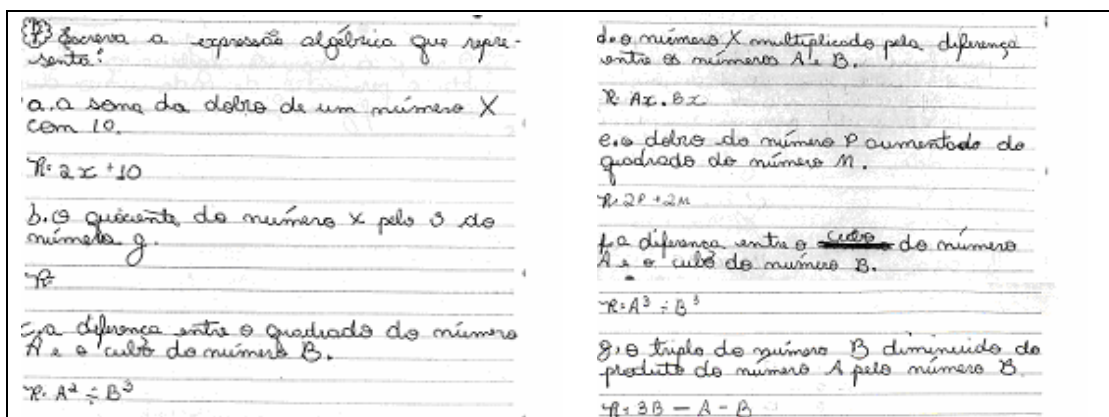 1) Escreva a expressão algébrica que repre-
senta:
a. a soma do dobro de um número X
com 10.
R: 2x + 10
b. o quociente do número x pelo 3 do
número y.
R:
c. a diferença entre o quadrado do número
A e o cubo do número B.
R: A² ÷ B³
d. o número X multiplicado pela diferença
entre os números A e B.
R: Ax . Bx
e. o dobro do número P aumentado do
quadrado do número M.
R: 2P + 2M
f. a diferença entre o cubo do número
A e o cubo do número B.
R: A³ ÷ B³
g. o triplo do número B diminuido do
produto do número A pelo número B.
R: 3B - A - B